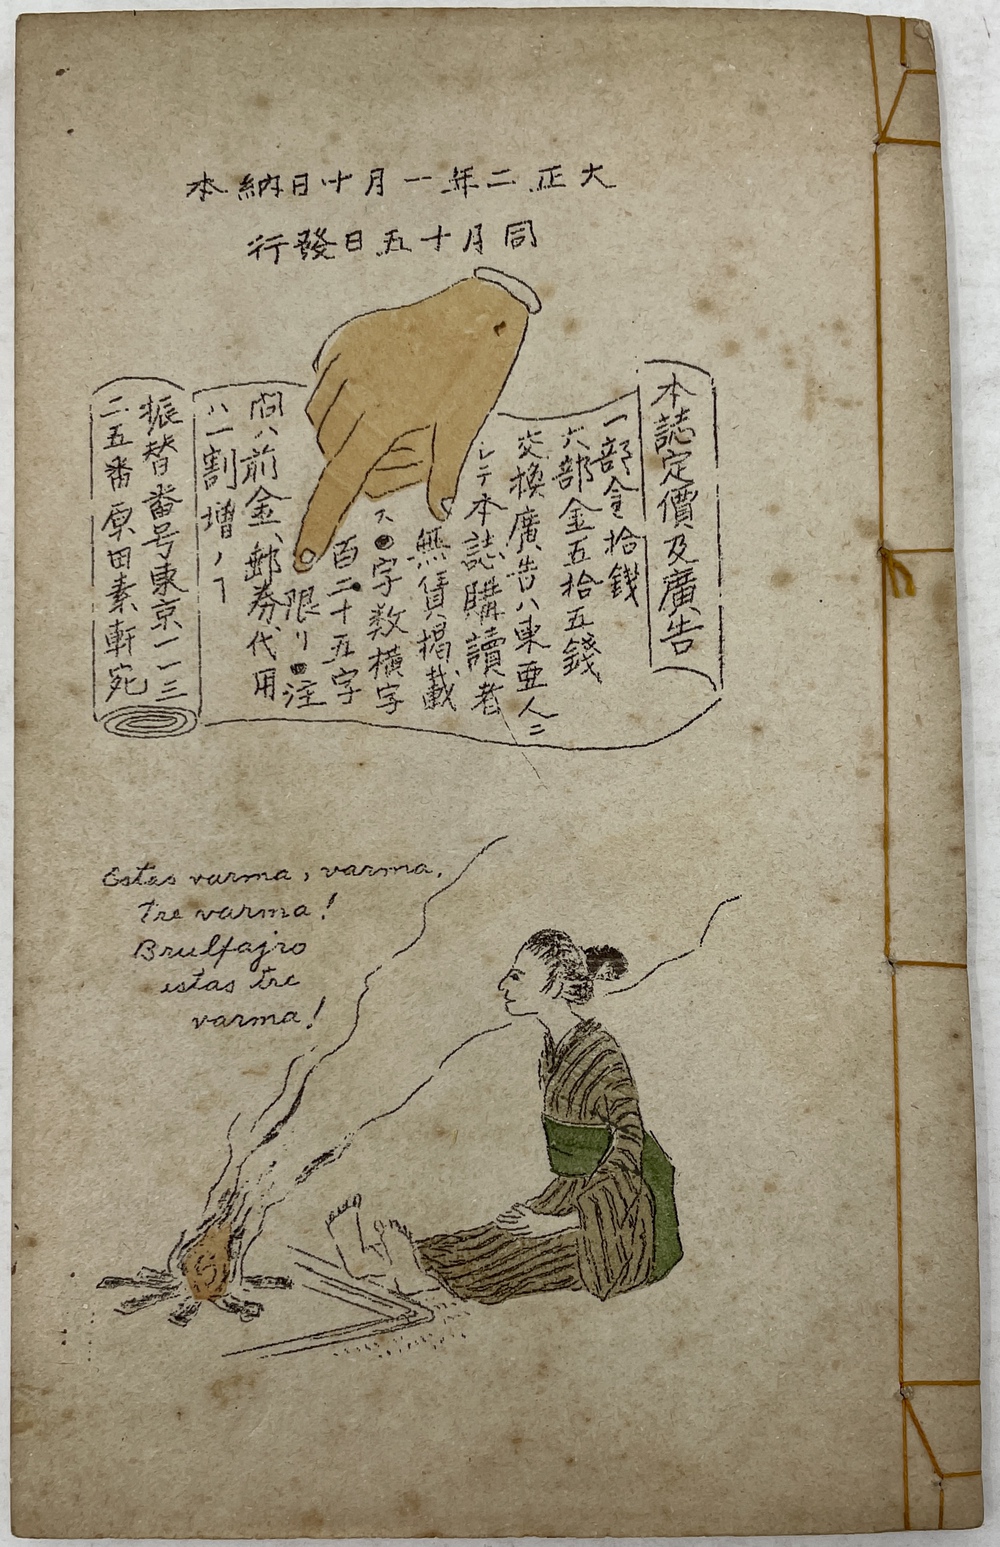 大正二年一月十日納本
同月十五日發行
本誌定價及廣告
一部金拾錢
六部金五拾五錢
交換廣告ハ東亜人ニ
シテ本誌購讀者
無賃掲載
ス●字数横字
百二十五字
限リ■注
向ハ前金、郵券代用
ハ一割増ノ
振替番号東京一一三
二五番原田素軒宛
Estas varma, varma,
tre varma!
Brulfajro
estas tre
varma!